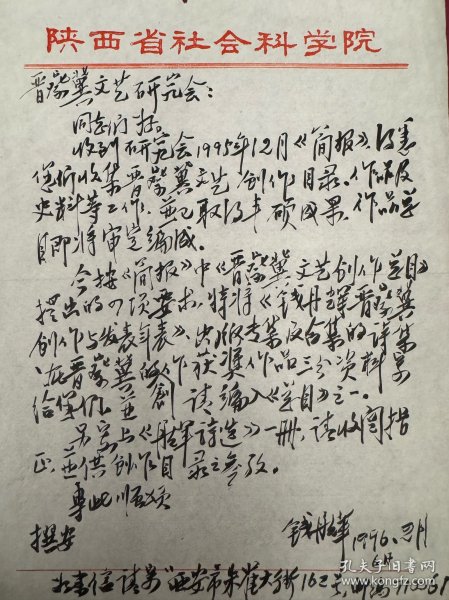 陕西省社会科学院
晋察冀文艺研究会：
同志们好。
收到研究会1995年12月《简报》，得悉
你们收集晋察冀文艺创作目录、作品及
史料等工作，并已取得丰硕成果，作品总
目即将审定编成。
今按《简报》中《晋察冀文艺创作总目》
提出的四项要求，特将《钱丹辉晋察冀
创作与发表年表》、出版专集及合集的诗集
在晋察冀创作获奖作品三份资料寄
给你们，并请编入《总目》之一。
另寄上《丹辉诗选》一册，请收阅指
正，并供创作目录之参考。
专此顺颂
撰安
钱丹辉 1996.3月
来信请寄西安市朱雀大街162号 邮编
孔夫子旧书网